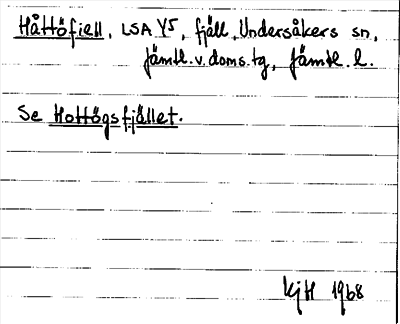 Håttöfiell, LSA Y5, fjäll, Undersåkers sn,
Jämtl. v. doms. tg, Jämtl. l.
Se Hottögsfjället.
KjH 1968